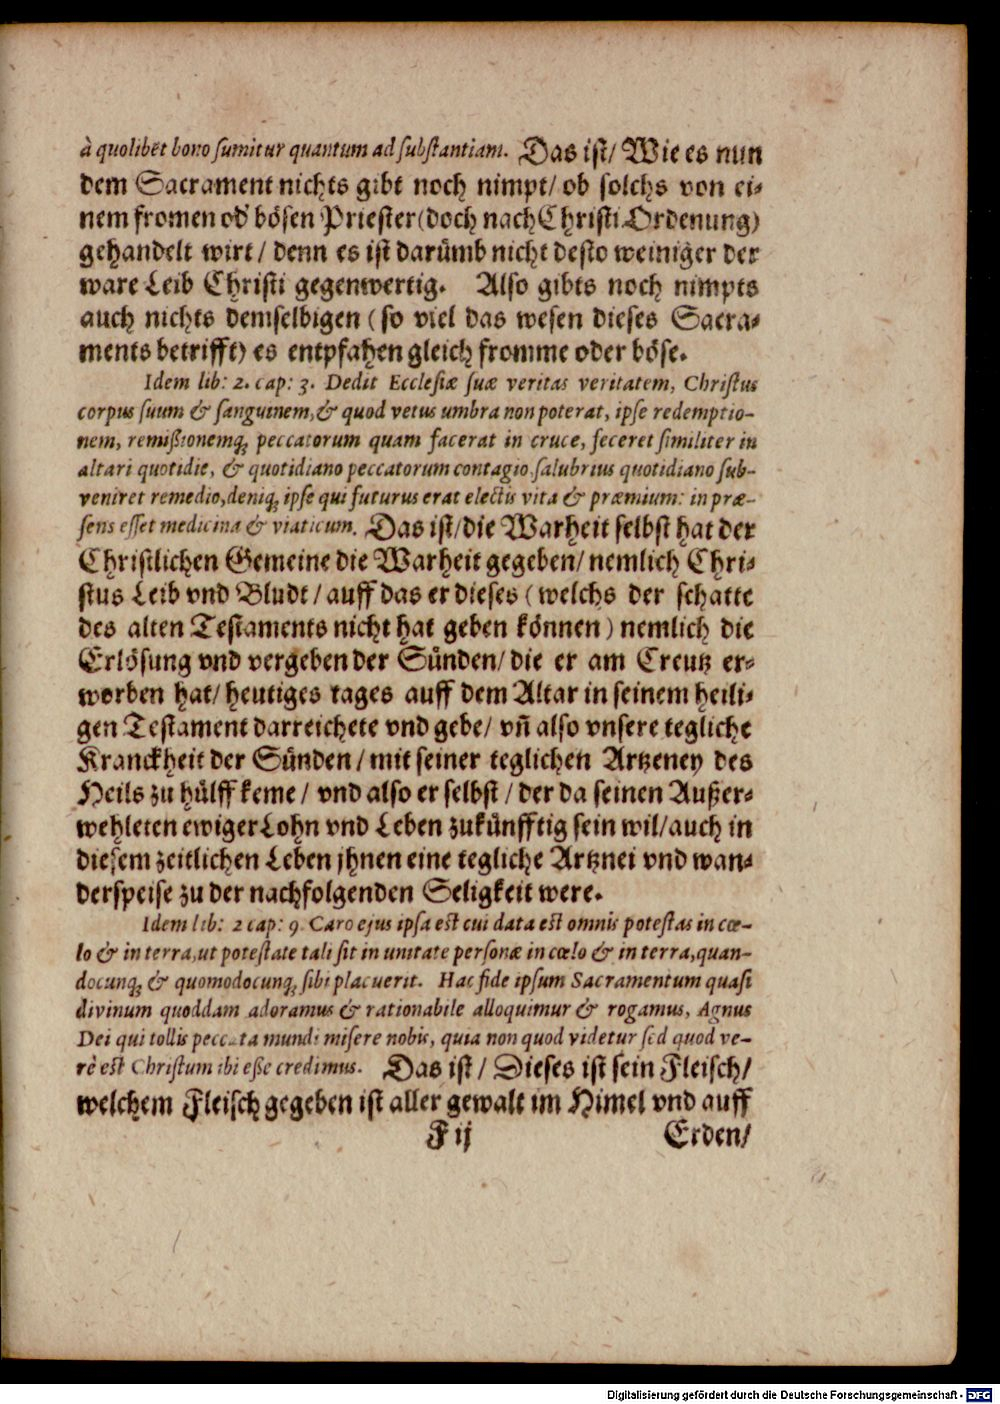 à quolibet bono sumitur quantum ad substantiam. Das ist/ Wie es nun
dem Sacrament nichts gibt noch nimpt/ ob solchs von ei-
nem fromen od' bösen Priester (doch nach Christi Ordenung)
gehandelt wirt / denn es ist darümb nicht desto weiniger der
ware Leib Christi gegenwertig. Also gibts noch nimpts
auch nichts demselbigen ( so viel das wesen dieses Sacra-
ments betrifft) es entpfahen gleich fromme oder böse.
Idem lib: 2. cap: 3. Dedit Ecclesiæ suæ veritas veritatem, Christus
corpus suum & sanguinem, & quod vetus umbra non poterat, ipse redemptio-
nem, remißionemq; peccatorum quam facerat in cruce, feceret similiter in
altari quotidie, & quotidiano peccatorum contagio salubrius quotidiano sub-
veniret remedio, deniq; ipse qui futurus erat electis vita & præmium: in præ-
sens esset medicina & viaticum. Das ist/ die Warheit selbst hat der
Christlichen Gemeine die Warheit gegeben/ nemlich Chri-
stus Leib vnd Bludt / auff das er dieses ( welchs der schatte
des alten Testaments nicht hat geben können ) nemlich die
Erlösung vnd vergeben der Sünden/ die er am Creutz er-
worben hat/ heutiges tages auff dem Altar in seinem heili-
gen Testament darreichete vnd gebe/ vn̄ also vnsere tegliche
Kranckheit der Sünden / mit seiner teglichen Artzeney des
Heils zu hülff keme / vnd also er selbst / der da seinen Außer-
wehleten ewiger Lohn vnd Leben zukünfftig sein wil/ auch in
diesem zeitlichen Leben jhnen eine tegliche Artznei vnd wan-
derspeise zu der nachfolgenden Seligkeit were.
Idem lib: 2 cap: 9. Caro ejus ipsa est cui data est omnis potestas in cœ-
lo & in terra, ut potestate tali sit in unitate personæ in cœlo & in terra, quan-
docunq; & quomodocunq; sibi placuerit. Hac fide ipsum Sacramentum quasi
divinum quoddam adoramus & rationabile alloquimur & rogamus, Agnus
Dei qui tollis peccata mundi misere nobis, quia non quod videtur sed quod ve-
rè est Christum ibi eße credimus. Das ist / Dieses ist sein Fleisch/
welchem Fleisch gegeben ist aller gewalt im Himel vnd auff
F ij Erden/
Digitalisierung gefördert durch die Deutsche Forschungsgemeinschaft - DFG